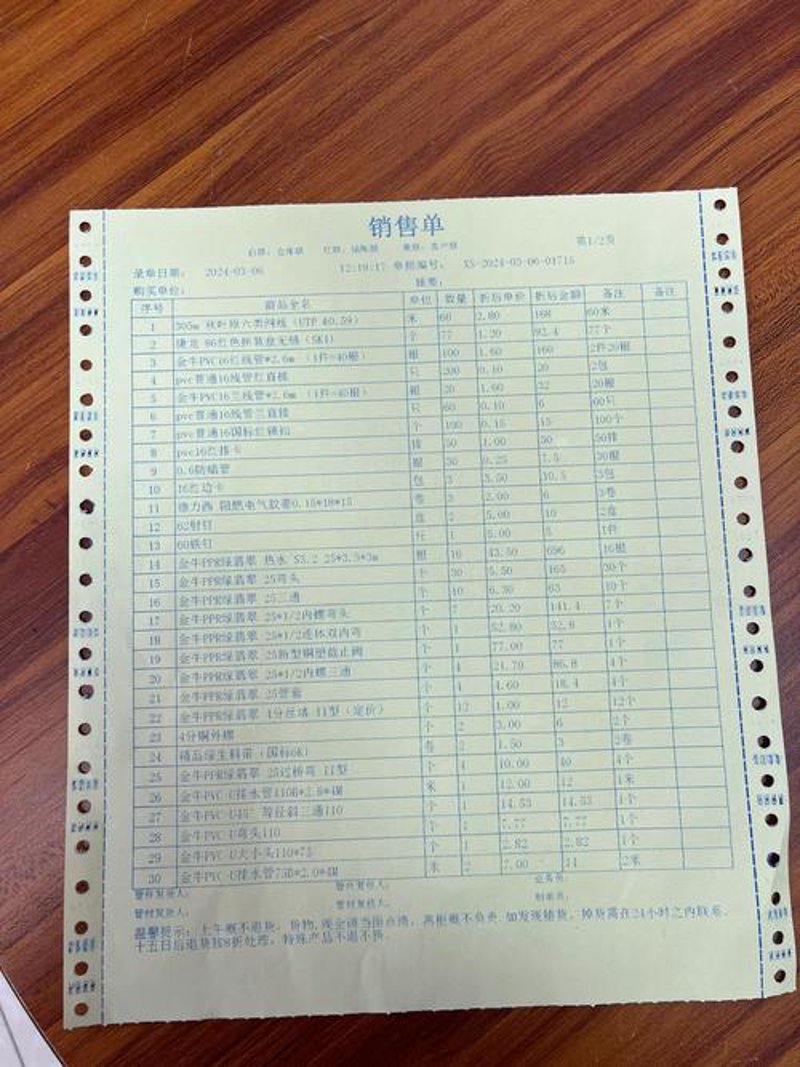 销售单
白联：仓库联 红联：结账联 黄联：客户联 第1/2页
录单日期： 2024-03-06 12:19:17 单据编号： XS-2024-03-06-01715
购买单位： 摘要：
序号 商品全名 单位 数量 折后单价 折后金额 备注 备注
1 305m 秋叶原六类网线（UTP Φ0.59） 米 60 2.80 168 60米
2 86红色 个 77 1.20 92.4 77个
3 金牛PVC16红线管*2.6m （1件=40根） 根 100 1.60 160 2件20根
4 pvc普通16线管红直接 只 200 0.10 20 2包
5 金牛PVC16兰线管*2.6m （1件=40根） 根 20 1.60 32 20根
6 pvc普通16线管兰直接 只 60 0.10 6 60只
7 pvc普通16国标红锁扣 个 100 0.15 15 100个
8 pvc16红排卡 排 50 1.00 50 50排
9 0.6防蜡管 根 30 0.25 7.5 30根
10 16红边卡 包 3 3.50 10.5 3包
11 德力西 阻燃电气胶带0.15*18*15 卷 3 2.00 6 3卷
12 62射钉 盒 2 5.00 10 2盒
13 60铁钉 斤 1 5.00 5 1件
14 金牛PPR绿翡翠 热水 S3.2 25*3.5*3m 根 16 43.50 696 16根
15 金牛PPR绿翡翠 25弯头 个 30 5.50 165 30个
16 金牛PPR绿翡翠 25三通 个 10 6.30 63 10个
17 金牛PPR绿翡翠 25*1/2内螺弯头 个 7 20.20 141.4 7个
18 金牛PPR绿翡翠 25*1/2连体双内弯 个 1 52.80 52.8 1个
19 金牛PPR绿翡翠 25新型铜塑截止阀 个 1 77.00 77 1个
20 金牛PPR绿翡翠 25*1/2内螺三通 个 4 21.70 86.8 4个
21 金牛PPR绿翡翠 25管套 个 4 4.60 18.4 4个
22 金牛PPR绿翡翠 4分丝堵 II型（定价） 个 12 1.00 12 12个
23 4分铜外螺 个 2 3.00 6 2个
24 精品绿生料带（国标6K） 卷 2 1.50 3 2卷
25 金牛PPR绿翡翠 25过桥弯 II型 个 4 10.00 40 4个
26 金牛PVC-U排水管110B*2.8*4M 米 1 12.00 12 1米
27 金牛PVC-U45°等径斜三通110 个 1 14.53 14.53 1个
28 金牛PVC-U弯头110 个 1 7.77 7.77 1个
29 金牛PVC-U大小头110*75 个 1 2.82 2.82 1个
30 金牛PVC-U排水管75B*2.0*4M 米 2 7.00 14 2米
管件发货人： 管件复核人： 业务员：
管材发货人： 管材复核人： 制单员：
温馨提示：上午概不退货，货物,现金请当面点清，离柜概不负责.如发现错货，掉货需在24小时之内联系.
十五日后退货按8折处理，特殊产品不退不换.